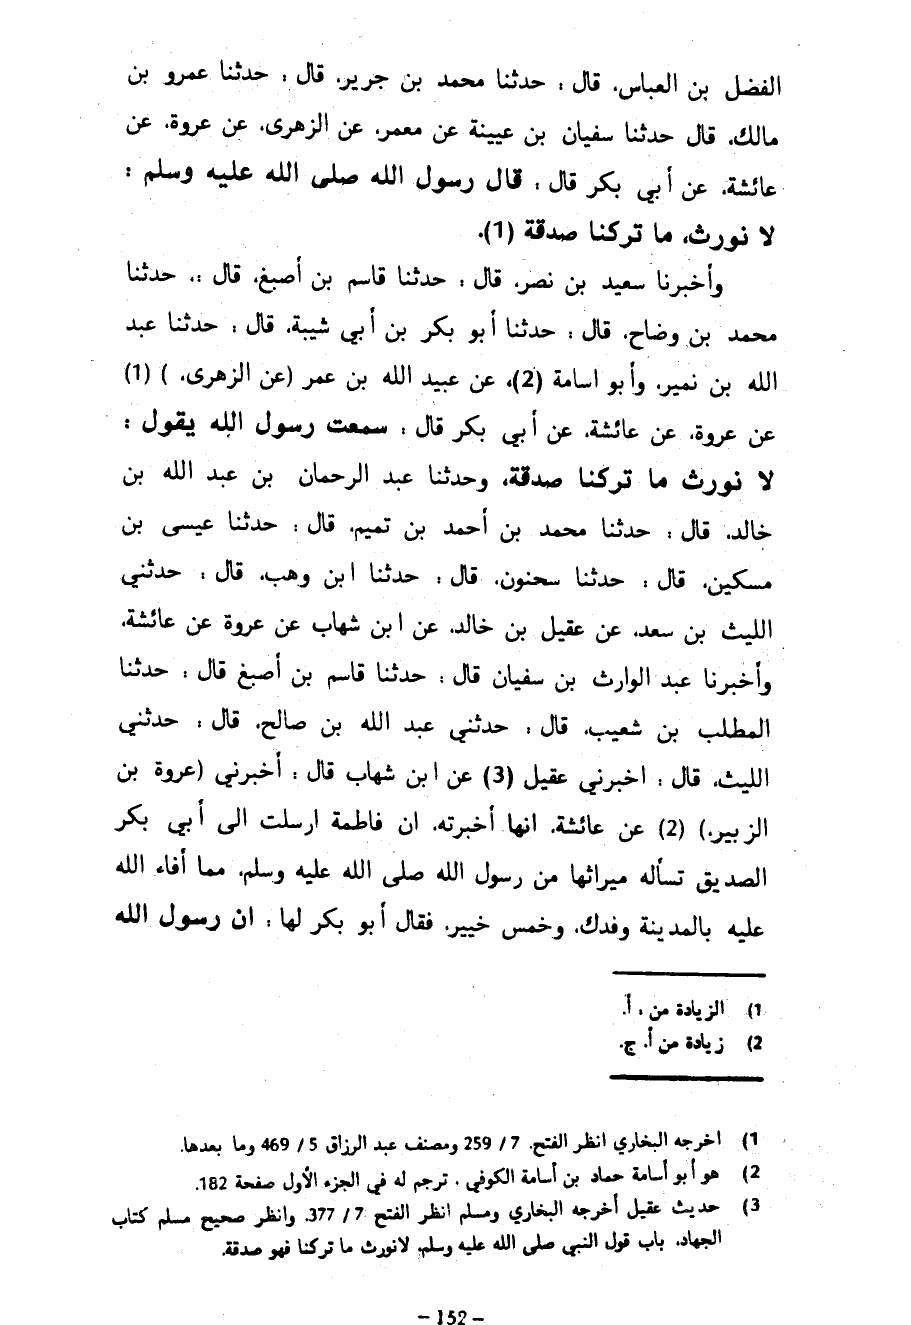 الفضل بن العباس، قال : حدثنا محمد بن جرير، قال : حدثنا عمرو بن
مالك، قال حدثنا سفيان بن عيينة عن معمر، عن الزهرى، عن عروة، عن
عائشة، عن أبي بكر قال : قال رسول الله صلى الله عليه وسلم :
لا نورث، ما تركنا صدقة (1).
وأخبرنا سعيد بن نصر، قال : حدثنا قاسم بن أصبغ، قال :، حدثنا
محمد بن وضاح، قال : حدثنا أبو بكر بن أبي شيبة، قال : حدثنا عبد
الله بن نمير، وأبو اسامة (2)، عن عبيد الله بن عمر (عن الزهرى، ) (1)
عن عروة، عن عائشة، عن أبي بكر قال : سمعت رسول الله يقول :
لا نورث ما تركنا صدقة، وحدثنا عبد الرحمان بن عبد الله بن
خالد، قال : حدثنا محمد بن أحمد بن تميم، قال : حدثنا عيسى بن
مسكين، قال : حدثنا سحنون، قال : حدثنا ابن وهب، قال : حدثني
الليث بن سعد، عن عقيل بن خالد، عن ابن شهاب عن عروة عن عائشة،
وأخبرنا عبد الوارث بن سفيان قال : حدثنا قاسم بن أصبغ قال : حدثنا
المطلب بن شعيب، قال : حدثني عبد الله بن صالح، قال : حدثني
الليث، قال : اخبرني عقيل (3) عن ابن شهاب قال : أخبرني (عروة بن
الزبير،) (2) عن عائشة، انها أخبرته، ان فاطمة ارسلت الى أبي بكر
الصديق تسأله ميراثها من رسول الله صلى الله عليه وسلم، مما أفاء الله
عليه بالمدينة وفدك، وخمس خيبر، فقال أبو بكر لها : ان رسول الله
1) الزيادة من : أ.
2) زيادة من أ. ج.
1) اخرجه البخاري انظر الفتح. 7 / 259 ومصنف عبد الرزاق 5 / 469 وما بعدها.
2) هو أبو أسامة حماد بن أسامة الكوفي . ترجم له في الجزء الأول صفحة 182.
3) حديث عقيل أخرجه البخاري ومسلم انظر الفتح 7 / 377. وانظر صحيح مسلم كتاب
الجهاد، باب قول النبي صلى الله عليه وسلم، لانورث ما تركنا فهو صدقة.
– 152 –